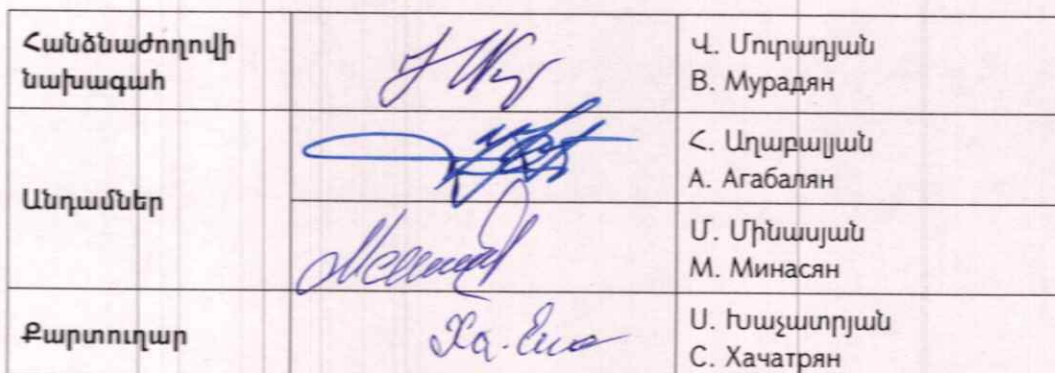 Հանձնաժողովի
նախագահ
Վ. Մուրադյան
В. Мурадян
Անդամներ
Հ. Աղաբալյան
А. Агабалян
Մ. Մինասյան
М. Минасян
Քարտուղար
Ս. Խաչատրյան
С. Хачатрян